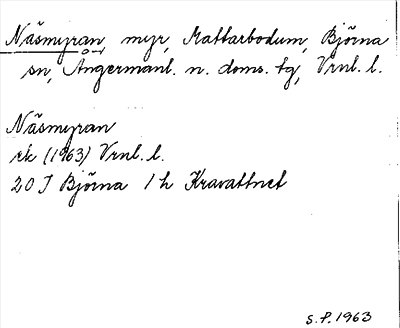 Näsmyran, myr, Mattarbodum, Björna
sn, Ångermanl. n. doms. tg, Vrnl. l.
Näsmyran
ek (1963) Vrnl. l.
20 J Björna 1 h Kravattnet
S.P. 1963